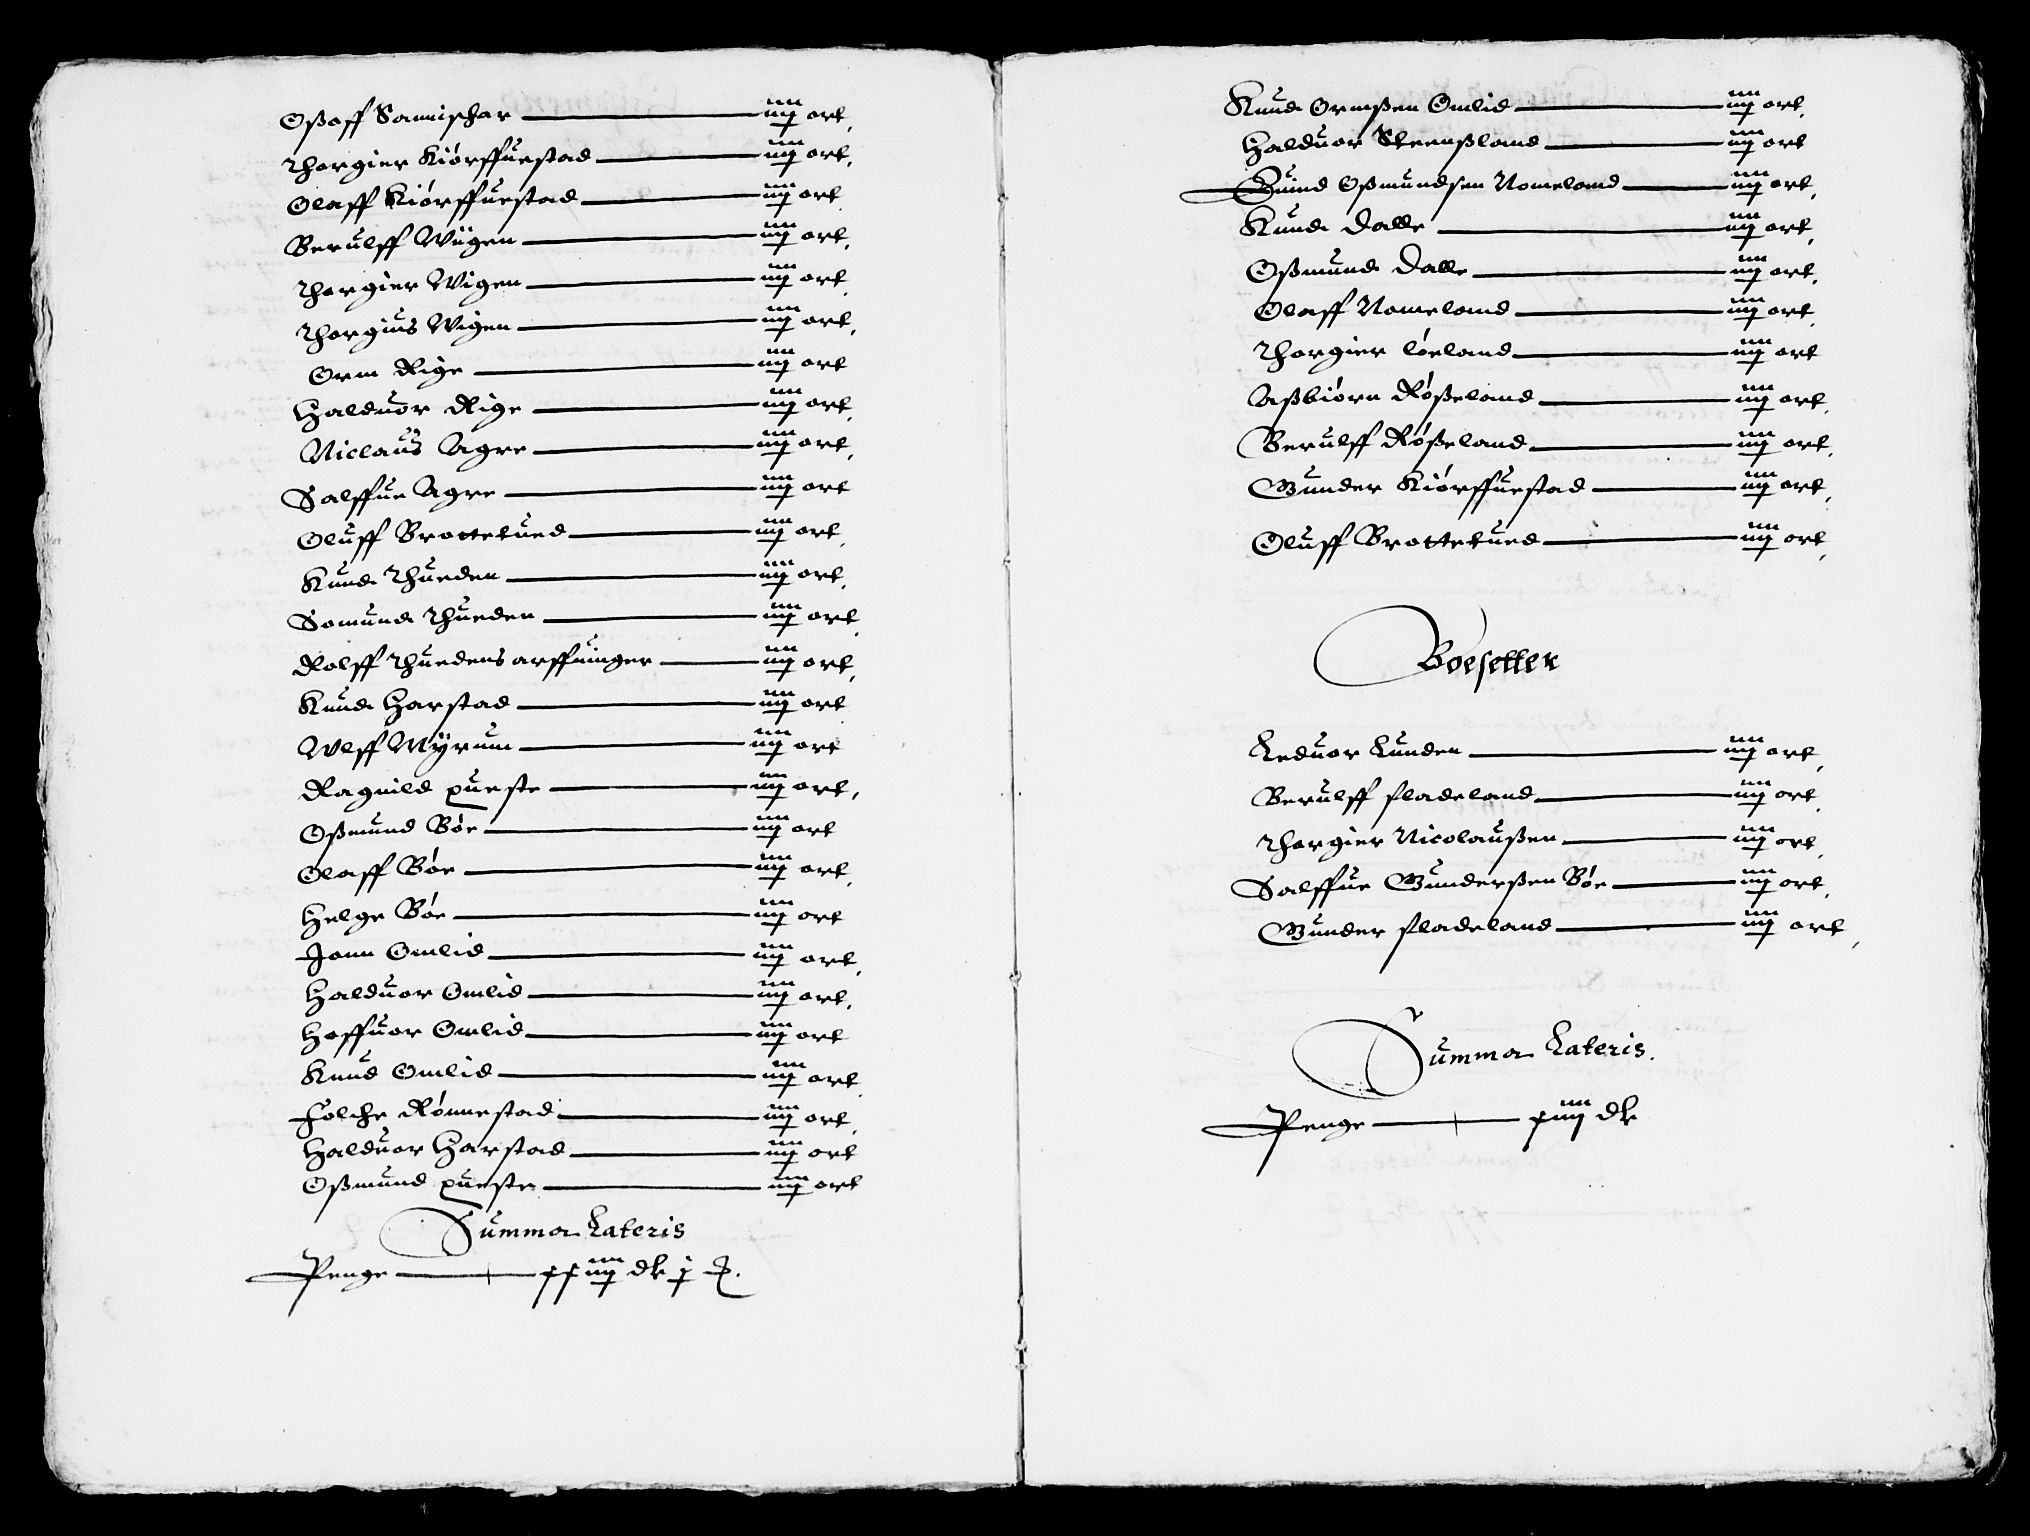 Oßoff Sannischar iiij ort
Thorgier Kiørffuestad iiij ort
Olaff Kiørffuestad iiij ort
Berulff Wiigen iiij ort
Thorgier Wigen iiij ort
Thorgius Wigen iiij ort
Orm Rige iiij ort
Halduor Rige iiij ort
Niclaus Agre iiij ort
Salffue Agre iiij ort
Oluff Brottetued iiij ort
Knud Thueden iiij ort
Somund Thueden iiij ort
Rolff Thuedens arffuinger iiij ort
Knud Harstad iiij ort
Wlff Myrum iiij ort
Ragnild Queste iiij ort
Oßmund Bøe iiij ort
Olaff Bøe iiij ort
Helge Bøe iiij ort
Jonn Omlid iiij ort
Halduor Omlid iiij ort
Hoffuor Omlid iiij ort
Knud Omlid iiij ort
Folche Rønnestad iiij ort
Halduor Harstad iiij ort
Oßmund Queste iiij ort
Summa Lateris
Penge xxiiij dlr j
Knud Ormßen Omlid iiij ort
Halduor Steenßland iiij ort
Suind Oßmundsen Nomeland iiij ort
Knud Dalle iiij ort
Oßmund Dalle iiij ort
Olaff Nomeland iiij ort
Thorgier Løeland iiij ort
Aßbiørn Røßeland iiij ort
Berulff Røßeland iiij ort
Gunder Kiørffuestad iiij ort
Oluff Brottetued iiij ort
Boesetter
Leduor Lunden iiij ort
Berulff fladeland iiij ort
Thorgier Nicolaußen iiij ort
Salffue Gunderßen Bøe iiij ort
Gunder fladeland iiij ort
Summa Lateris.
Penge xiiij dlr